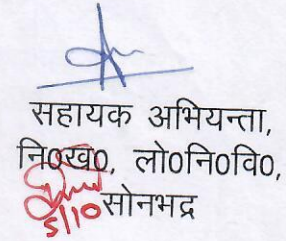 सहायक अभियन्ता,
नि०ख०, लो०नि०वि०,
सोनभद्र
5/10